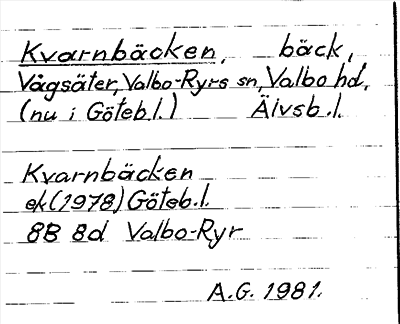 Kvarnbäcken, bäck,
Vågsäter, Valbo-Ryrs sn, Valbo hd,
(nu i Göteb.l.) Älvsb.l.
Kvarnbäcken
ek (1978) Göteb.l.
8B 8d Valbo-Ryr
A.G. 1981.